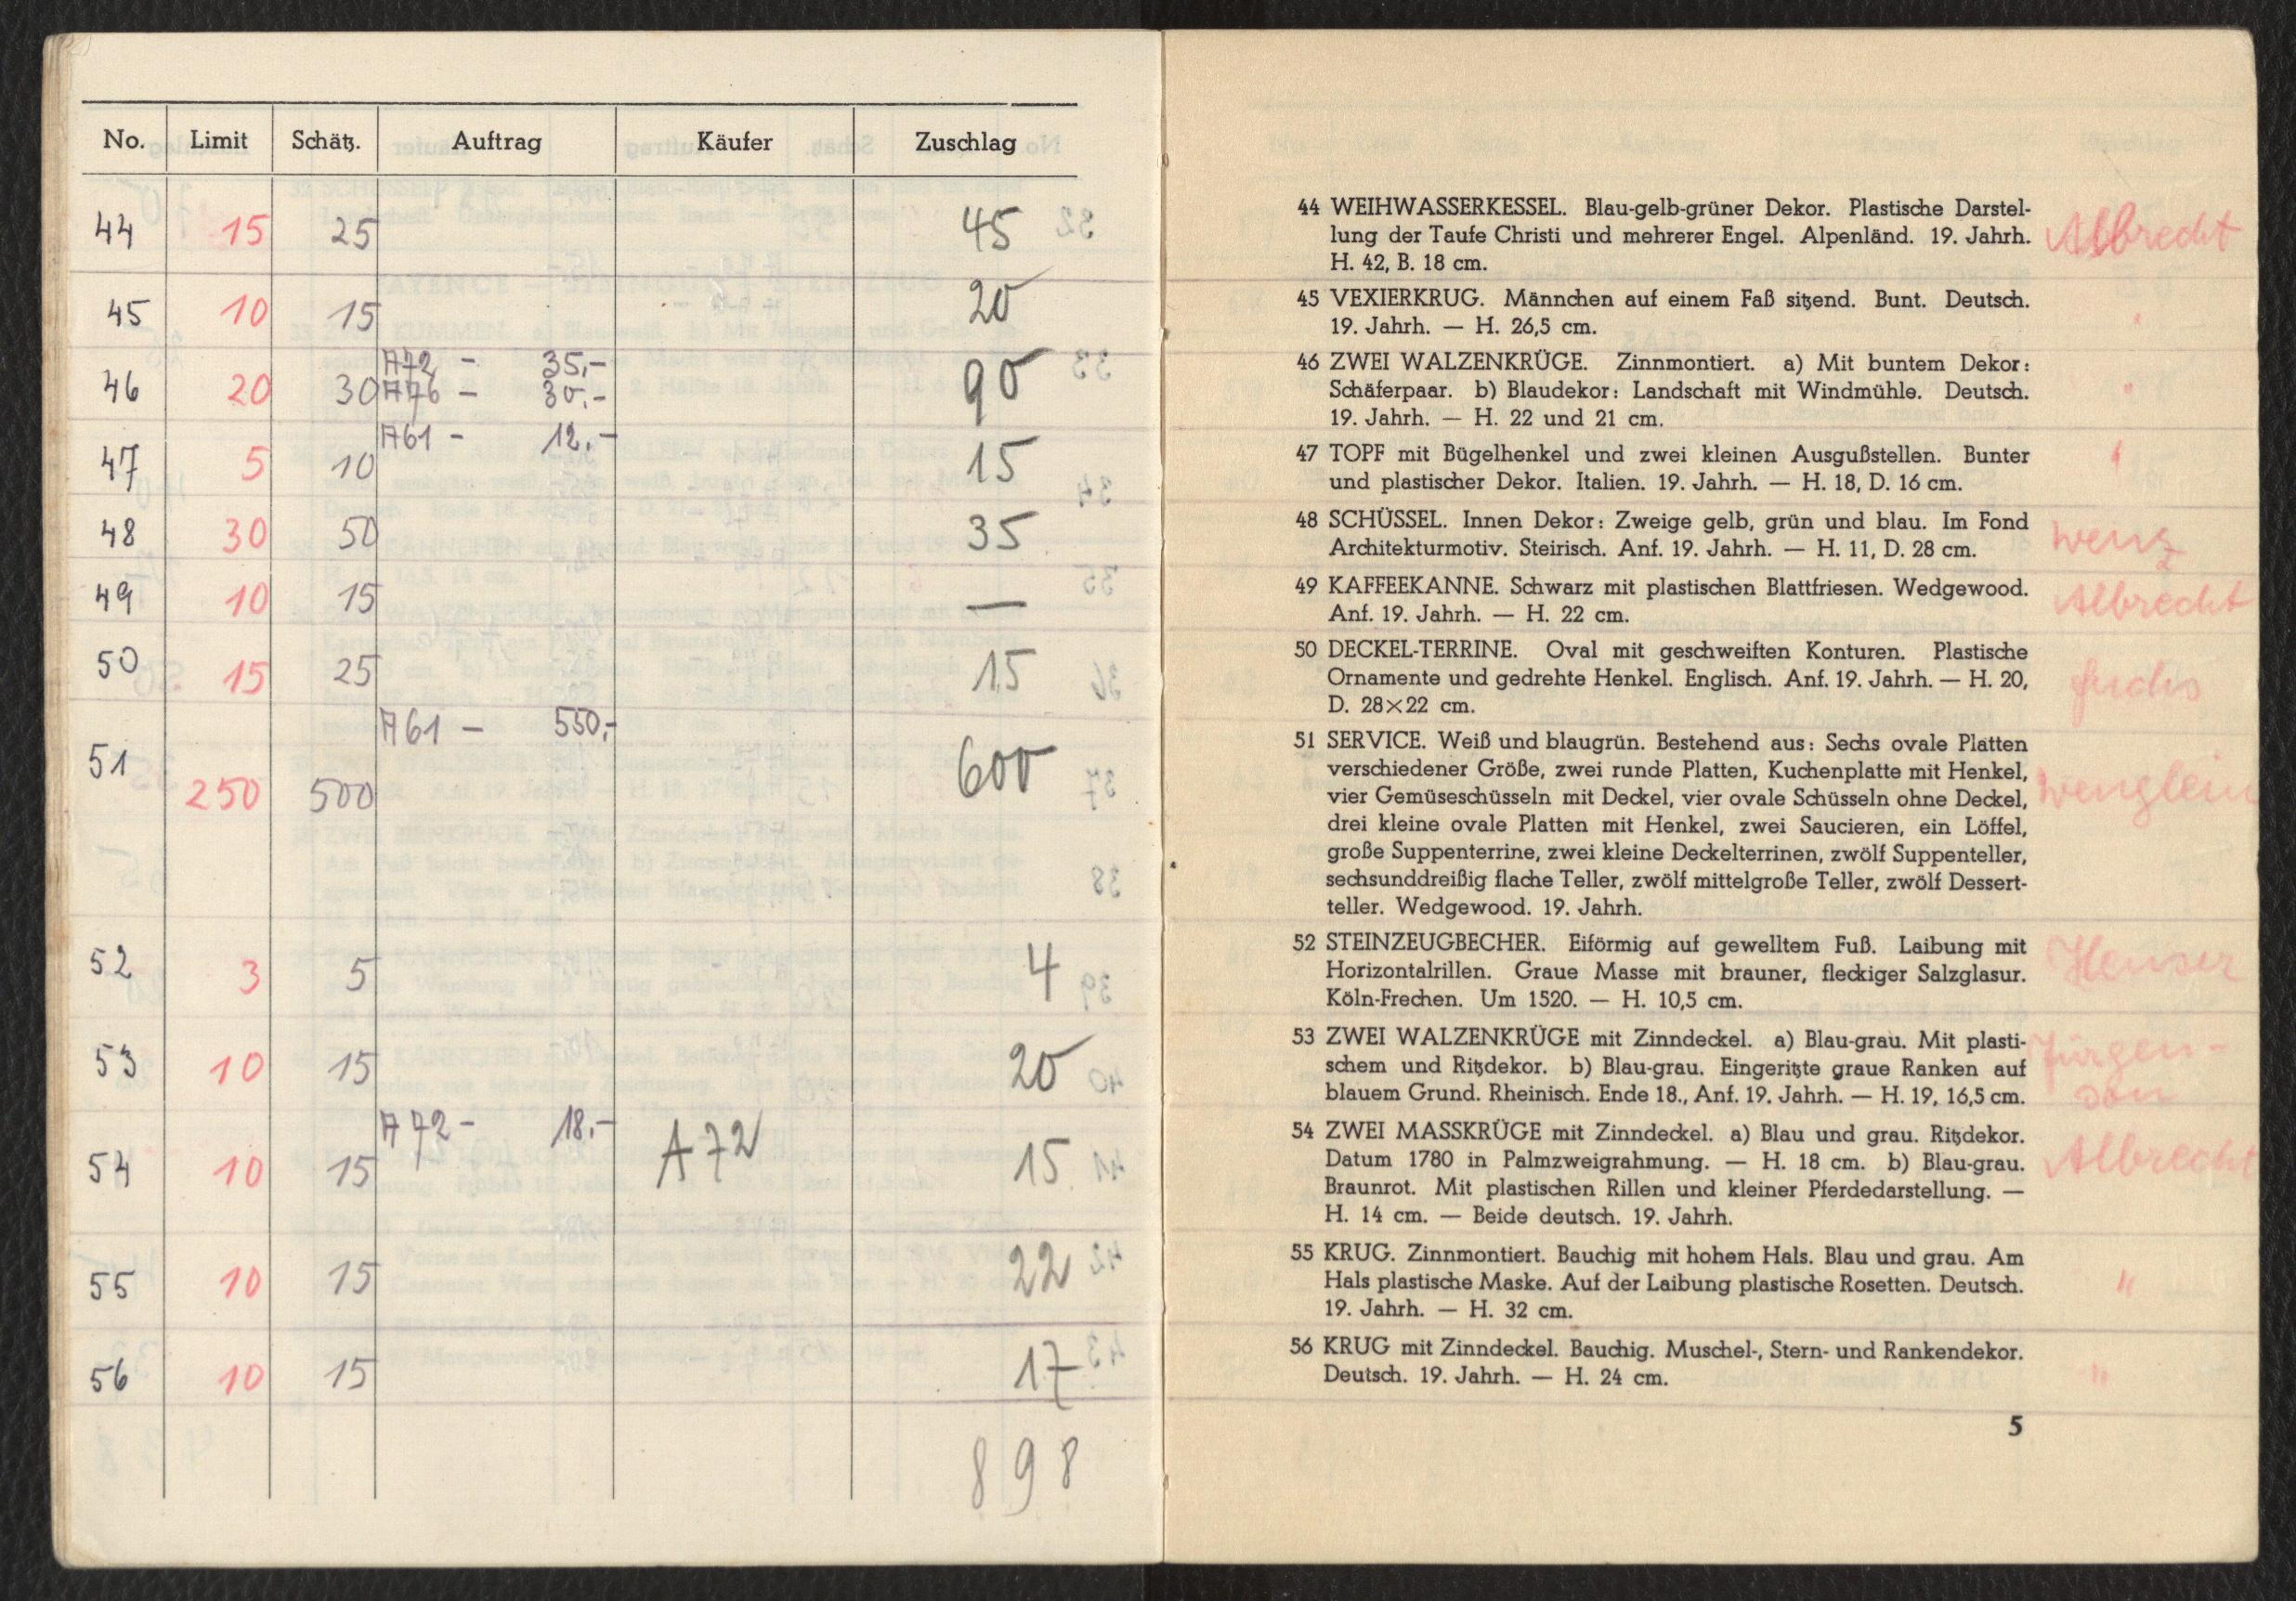 No. Limit Schätz. Auftrag Käufer Zuschlag
44 15 25 45
45 10 15 20
A72 - 35,-
46 20 30 A76 - 30.- 90
A61 - 12.-
47 5 10 15
48 30 50 35
49 10 15 —
50 15 25 15
A61 - 550,-
51 250 500 600
52 3 5 4
53 10 15 20
A72 - 18.-
54 10 15 A72 15
55 10 15 22
56 10 15 17
898
44 WEIHWASSERKESSEL. Blau-gelb-grüner Dekor. Plastische Darstel-
lung der Taufe Christi und mehrerer Engel. Alpenländ. 19. Jahrh. Albrecht
H. 42, B. 18 cm.
45 VEXIERKRUG. Männchen auf einem Faß sitzend. Bunt. Deutsch.
19. Jahrh. — H. 26,5 cm. "
46 ZWEI WALZENKRÜGE. Zinnmontiert. a) Mit buntem Dekor:
Schäferpaar. b) Blaudekor: Landschaft mit Windmühle. Deutsch. "
19. Jahrh. — H. 22 und 21 cm.
47 TOPF mit Bügelhenkel und zwei kleinen Ausgußstellen. Bunter "
und plastischer Dekor. Italien. 19. Jahrh. — H. 18, D. 16 cm.
48 SCHÜSSEL. Innen Dekor: Zweige gelb, grün und blau. Im Fond
Architekturmotiv. Steirisch. Anf. 19. Jahrh. — H. 11, D. 28 cm. Wenz
49 KAFFEEKANNE. Schwarz mit plastischen Blattfriesen. Wedgewood. Albrecht
Anf. 19. Jahrh. — H. 22 cm.
50 DECKEL-TERRINE. Oval mit geschweiften Konturen. Plastische
Ornamente und gedrehte Henkel. Englisch. Anf. 19. Jahrh. — H. 20, Fuchs
D. 28×22 cm.
51 SERVICE. Weiß und blaugrün. Bestehend aus: Sechs ovale Platten
verschiedener Größe, zwei runde Platten, Kuchenplatte mit Henkel, Wenglein
vier Gemüseschüsseln mit Deckel, vier ovale Schüsseln ohne Deckel,
drei kleine ovale Platten mit Henkel, zwei Saucieren, ein Löffel,
große Suppenterrine, zwei kleine Deckelterrinen, zwölf Suppenteller,
sechsunddreißig flache Teller, zwölf mittelgroße Teller, zwölf Dessert-
teller. Wedgewood. 19. Jahrh.
52 STEINZEUGBECHER. Eiförmig auf gewelltem Fuß. Laibung mit
Horizontalrillen. Graue Masse mit brauner, fleckiger Salzglasur. Heuser
Köln-Frechen. Um 1520. — H. 10,5 cm.
53 ZWEI WALZENKRÜGE mit Zinndeckel. a) Blau-grau. Mit plasti- Jürgen-
schem und Ritzdekor. b) Blau-grau. Eingeritzte graue Ranken auf
blauem Grund. Rheinisch. Ende 18., Anf. 19. Jahrh. — H. 19, 16,5 cm. son
54 ZWEI MASSKRÜGE mit Zinndeckel. a) Blau und grau. Ritzdekor.
Datum 1780 in Palmzweigrahmung. — H. 18 cm. b) Blau-grau. Albrecht
Braunrot. Mit plastischen Rillen und kleiner Pferdedarstellung. —
H. 14 cm. — Beide deutsch. 19. Jahrh.
55 KRUG. Zinnmontiert. Bauchig mit hohem Hals. Blau und grau. Am
Hals plastische Maske. Auf der Laibung plastische Rosetten. Deutsch. "
19. Jahrh. — H. 32 cm.
56 KRUG mit Zinndeckel. Bauchig. Muschel-, Stern- und Rankendekor.
Deutsch. 19. Jahrh. — H. 24 cm. "
5